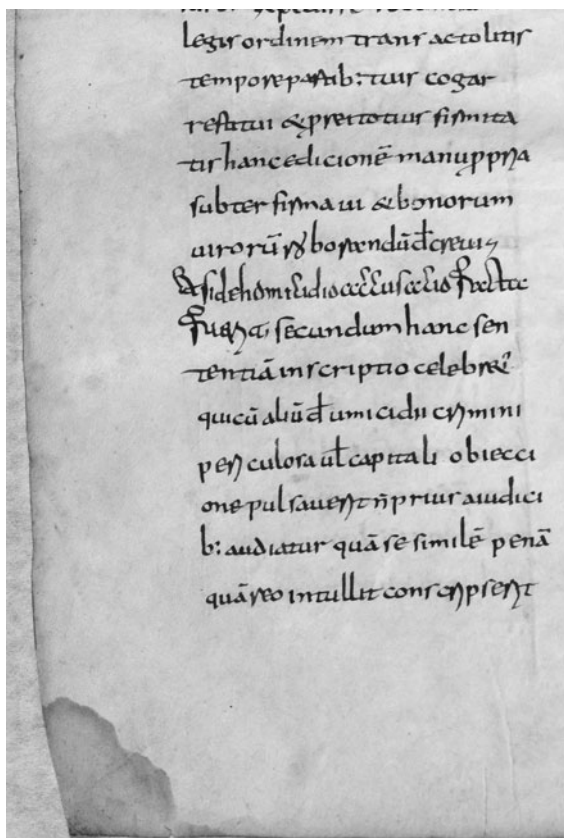 legis ordinem transacto litis
tempore partib: tuis cogar
restitui & prei totius firmita
tis hanc edicionē manu ppria
subter firmaui & bonorum
uirorū
Et si de homicidio accusatio
fuerit, secundum hanc sen
tentiā inscriptio celebret̄
quicū aliūd umicidii crimini
periculosa ul̄ capitali obiecci
one pulsauerit n̄ prius a iudici
b: audiatur quā se similē penā
quā reo intullit conscripserit